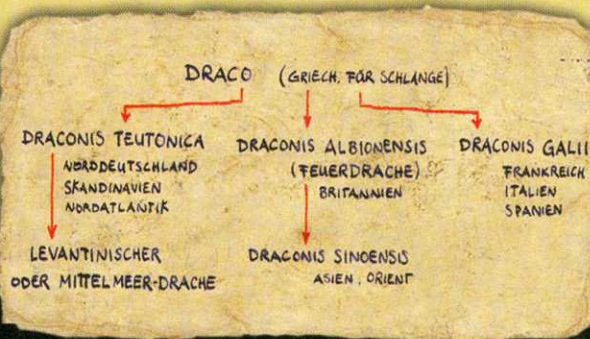 DRACO (GRIECH. FÜR SCHLANGE)
DRACONIS TEUTONICA
NORDDEUTSCHLAND
SKANDINAVIEN
NORDATLANTIK
LEVANTINISCHER
ODER MITTELMEER-DRACHE
DRACONIS ALBIONENSIS
(FEUERDRACHE)
BRITANNIEN
DRACONIS SINOENSIS
ASIEN, ORIENT
DRACONIS GALII
FRANKREICH
ITALIEN
SPANIEN